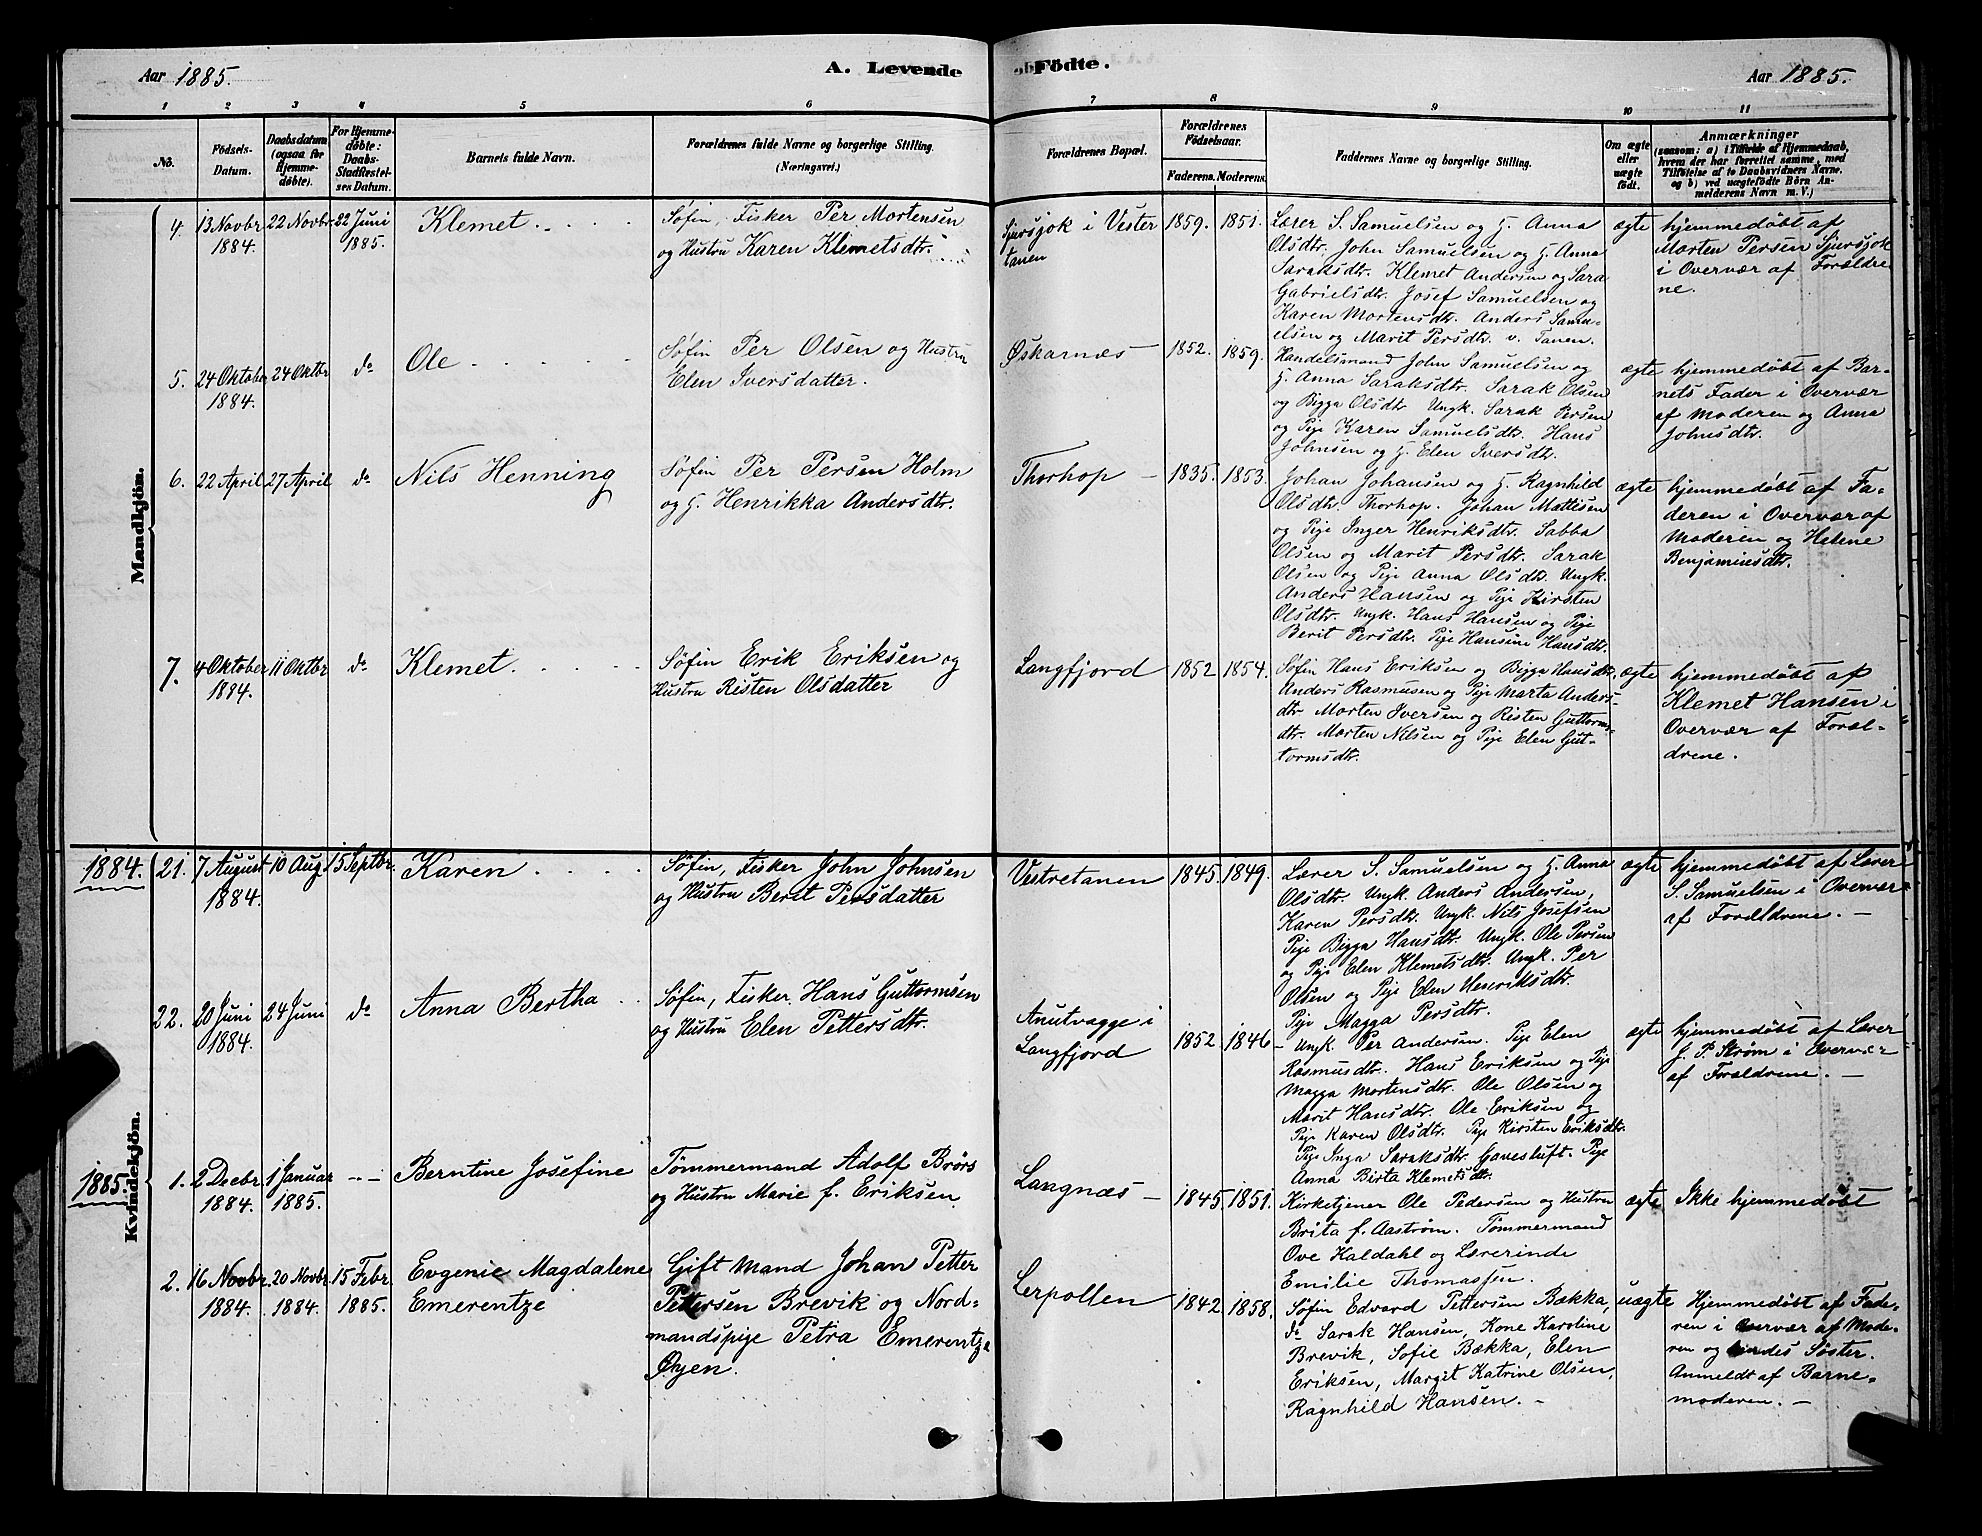 Aar 1885.
A. Levende
Födte.
Aar 1885.
1 2 3 4 5 6 7 8 9 10 11
No.
Födsels-
Datum.
Daabsdatum
(ogsaa for
Hjemme-
døbte).
For Hjemme-
døbte:
Daabs-
Stadfæstel-
ses Datum.
Barnets fulde Navn.
Forældrenes fulde Navne og borgerlige Stilling.
(Næringsvei.)
Forældrenes Bopæl.
Forældrenes
Födselsaar.
Faderens. Moderens.
Faddernes Navne og borgerlige Stilling.
Om ægte
eller
uægte
födt.
Anmærkninger
(saasom: a) i Tilfælde af Hjemmedaab,
hvem der har forrettet samme, med
Tilföielse af to Daabsvidners Navne,
og b) ved uægtefödte Börn An-
melderens Navn m. V.)
Mandkjön.
4.
13 Novbr
1884.
22 Novbr
22 Juni
1885.
Klemet
Søfin, Fisker Per Mortensen
og Hustru Karen Klemetsdtr.
Sjursjok i Vester
tanen
1859. 1851.
Lærer S. Samuelsen og H. Anna
Olsdtr. John Samuelsen og H. Anna
Saraksdtr. Klemet Andersen og Sara
Gabrielsdtr. Josef Samuelsen og
Karen Mortensdtr. Anders Samu-
elsen og Marit Persdtr. v. Tanen.
ægte
hjemmedøbt af
Morten Persen Sjursjok
i Overvær af Forældre
ne.
5.
24 Oktober
1884.
24 Oktbr
do
Ole
Søfin Per Olsen og Hustru
Elen Iversdatter.
Øskarnæs
1852. 1859.
Handelsmand John Samuelsen og
H. Anna Saraksdtr. Sarak Olsen
og Bigga Olsdtr. Ungk. Sarak Persen
og Pige Karen Samuelsdtr. Hans
Johnsen og H. Elen Iversdtr.
ægte
hjemmedøbt af Bar-
nets Fader i Overvær
af Moderen og Anna
Johnsdtr.
6.
22 April
27 April
do
Nils Henning
Søfin Per Persen Holm
og H. Henrikka Andersdtr.
Thorhop
1835. 1853.
Johan Johansen og H. Ragnhild
Olsdtr. Thorhop. Johan Mattisen
og Pige Inger Henriksdtr. Sabba
Olsen og Marit Persdtr. Sarak
Olsen og Pige Anna Olsdtr. Ungk.
Anders Hansen og Pige Kirsten
Olsdtr. Ungk. Hans Hansen og Pige
Berit Persdtr. Pige Hansine Hansdtr.
ægte
hjemmedøbt af Fa-
deren i Overvær af
Moderen og Helene
Benjaminsdtr.
7.
4 Oktober
1884.
11 Oktbr
do
Klemet.
Søfin Erik Eriksen og
Hustru Risten Olsdatter
Langfjord
1852 1854.
Søfin Hans Eriksen og Bigga Hansdtr.
Anders Rasmusen og Pige Marta Anders-
dtr. Morten Iversen og Risten Guttorms-
dtr. Morten Nilsen og Pige Elen Gut-
tormsdtr.
ægte
hjemmedøbt af
Klemet Hansen i
Overvær af Foræl-
drene.
Kvindekjön.
1884.
21.
7 August
1884.
10 Aug
15 Septbr.
Karen
Søfin, Fisker John Johnsen
og Hustru Berit Persdatter
Vestretanen
1845. 1849.
Lærer S. Samuelsen og H. Anna
Olsdtr. Ungk. Anders Andersen,
Karen Persdtr. Ungk. Nils Josefsen
Pige Bigga Hansdtr. Ungk. Ole Persen
og Pige Elen Klemetsdtr. Ungk. Per
Olsen og Pige Elen Henriksdtr.
Pige Magga Persdtr.
ægte
hjemmedøbt af Lærer
S. Samuelsen i Overvær
af Forældrene.
22.
20 Juni
1884.
24 Juni
do
Anna Bertha
Søfin, Fisker Hans Guttormsen
og Hustru Elen Pettersdtr.
Anutvagge i
Langfjord
1852 1846
Ungk. Per Andersen. Pige Elen
Rasmusdtr. Hans Eriksen og Pige
Magga Mortensdtr. Ole Olsen og
Marit Hansdtr. Ole Eriksen og
Pige Karen Olsdtr. Pige Kirsten Eriksdtr.
Pige Inga Saraksdtr. Gavesluft. Pige
Anna Birta Klemetsdtr.
ægte
hjemmedøbt af Lærer
J. P. Strøm i Overvær
af Forældrene.
1885.
1.
2 Decbr.
1884.
1 Januar
1885.
Berntine Josefine
Tømmermand Adolf Brørs
og Hustru Marie f. Eriksen.
Langnæs
1845. 1851.
Kirketjener Ole Pedersen og Hustru
Brita f. Aaström. Tømmermand
Ove Haldahl og Lærerinde
Emilie Thomassen.
ægte
Ikke hjemmedøbt
2.
16 Novbr.
1884.
20 Novbr.
1884.
15 Febr.
1885.
Evgenie Magdalene
Emerentze
Gift Mand Johan Petter
Pettersen Brevik og Nord-
mandspige Petra Emerentze
Øyen.
Lerpollen
1842. 1858.
Søfin Edvard Pettersen Bækka,
do Sarak Hansen, Kone Karoline
Brevik, Sofie Bækka, Elen
Eriksen, Margit Katrine Olsen,
Ragnhild Hansen.
uægte
Hjemmedøbt af Fade-
ren i Overvær af Mode-
ren og hindes Søster.
Anmeldt af Barne-
moderen.